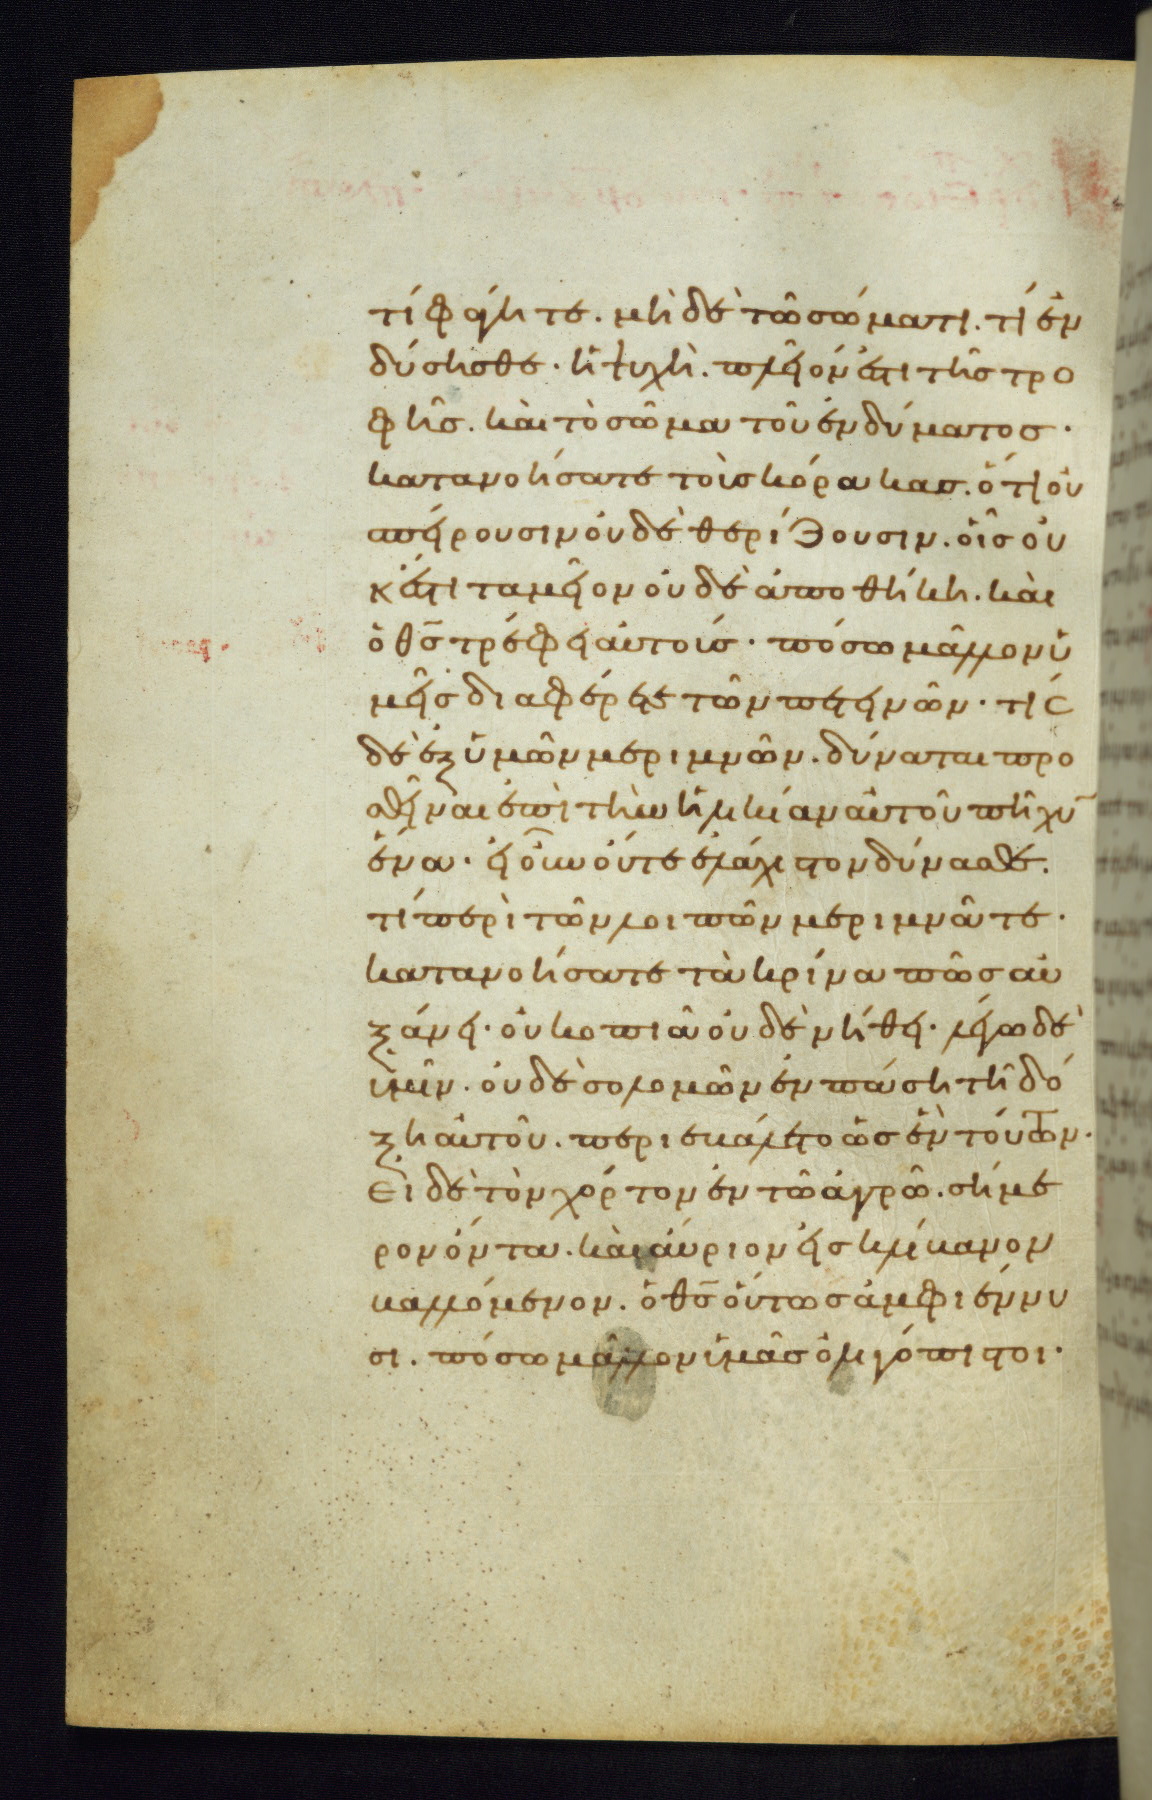 τί φάγητε. μὴ δὲ τῶ σώματι. τί ἐν
δύσησθε· ἡ ψυχὴ. πλεῖόν ἐστι τῆς τρο
φῆς. καὶ τὸ σῶμα τοῦ ἐνδύματος·
κατανοήσατε τοὺς κόρακας. ὅτι οὐ
σπείρουσιν οὐδὲ θερίζουσιν. οἷς οὐ
κ ἔστι ταμεῖον οὐδὲ ἀποθήκη. καὶ
ὁ θς̅ τρέφει αὐτούς· πόσω μᾶλλον ὑ
μεῖς διαφέρετε τῶν πετεινῶν· τίς
δὲ ἐξ ὑμῶν μεριμνῶν. δύναται προ
σθεῖναι ἐπὶ τὴν ἡλικίαν αὐτοῦ πῆχυ̅
ἕνα· εἰ οὖν οὔτε ἐλάχιστον δύνασθε.
τί περὶ τῶν λοιπῶν μεριμνᾶτε·
κατανοήσατε τὰ κρίνα πῶς αὐ
ξάνει· οὐ κοπιᾶ οὐδὲ νήθει· λέγω δὲ
ὑμῖν. οὐδὲ σολομῶν ἐν πάση τῆ δό
ξη αὐτοῦ. περιεβάλετο ὡς ἓν τούτων·
Εἰ δὲ τὸν χόρτον ἐν τῶ ἀγρῶ. σήμε
ρον ὄντα. καὶ αὔριον εἰς κλίβανον
βαλλόμενον. ὁ θς̅ οὕτως ἀμφιέννυ
σι. πόσω μᾶλλον ὑμᾶς ὀλιγόπιστοι·